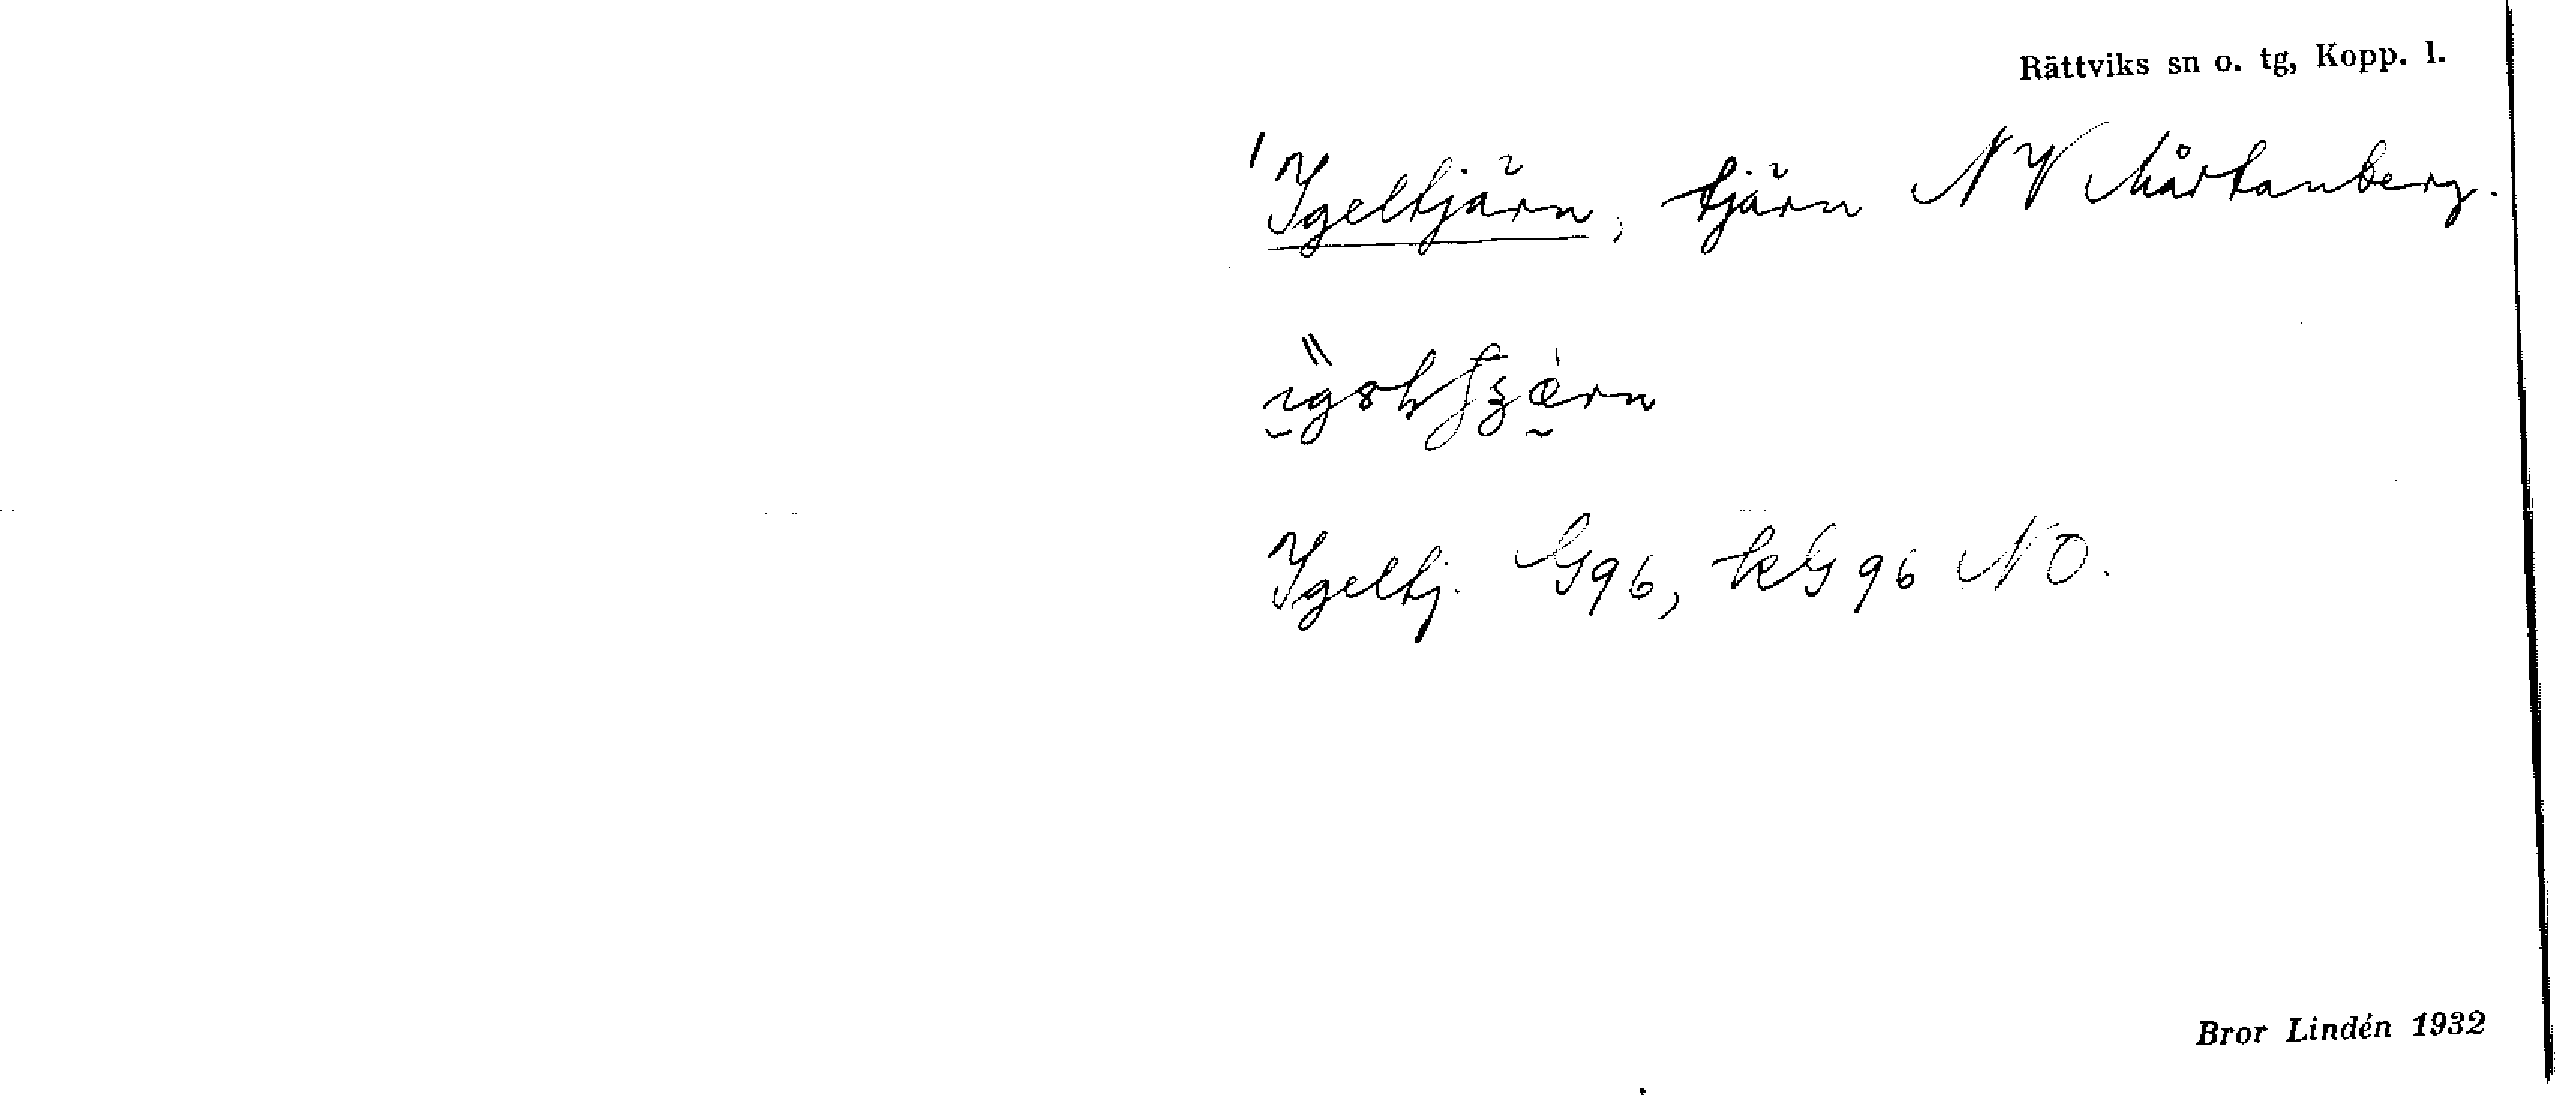 Rättviks sn o. tg, Kopp. l.
Igeltjärn, tjärn NV Mårtanberg.
Igeltj. G96, kG96 NO.
Bror Lindén 1932